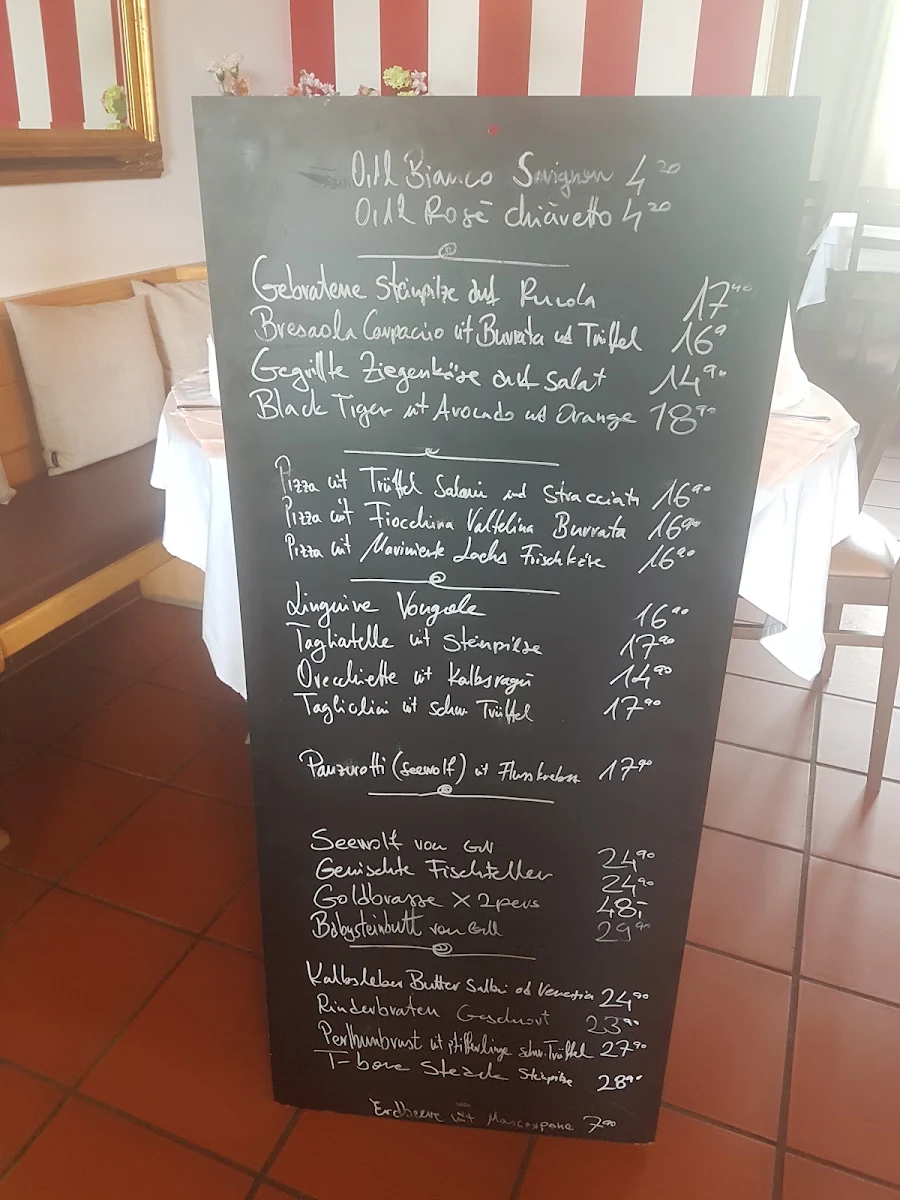 0,1l Bianco Sovignon 4²⁰
0,1l Rosé chiaretto 4²⁰
Gebratene Steinpilze auf Rucola 17⁹⁰
Bresaola Carpaccio mit Burrata und Trüffel 16⁹
Gegrillte Ziegenkäse auf Salat 14⁹⁰
Black Tiger mit Avocado und Orange 18⁹⁰
Pizza mit Trüffel Salami und Stracciata 16⁹⁰
Pizza mit Fiocchina Valtelina Burrata 16⁹⁰
Pizza mit Marinierte Lachs Frischkäse 16⁹⁰
Linguine Vongole 16⁹⁰
Tagliatelle mit Steinpilze 17⁹⁰
Orecchiette mit Kalbsragù 14⁹⁰
Tagliolini mit schw. Trüffel 17⁹⁰
Panzerotti (Seewolf) mit Flusskrebse 17⁹⁰
Seewolf von Grill 24⁹⁰
Gemischte Fischteller 24⁹⁰
Goldbrasse X 2 pers 48,-
Babysteinbutt von Grill 29⁹⁰
Kalbsleber Butter Salbei od Venezia 24⁹⁰
Rinderbraten Geschmort 23⁹⁰
Perlhunbrust mit pfifferlinge schw. Trüffel 27⁹⁰
T-bone Steack Steinpilze 28⁹⁰
Erdbeere mit Mascarpone 7⁹⁰